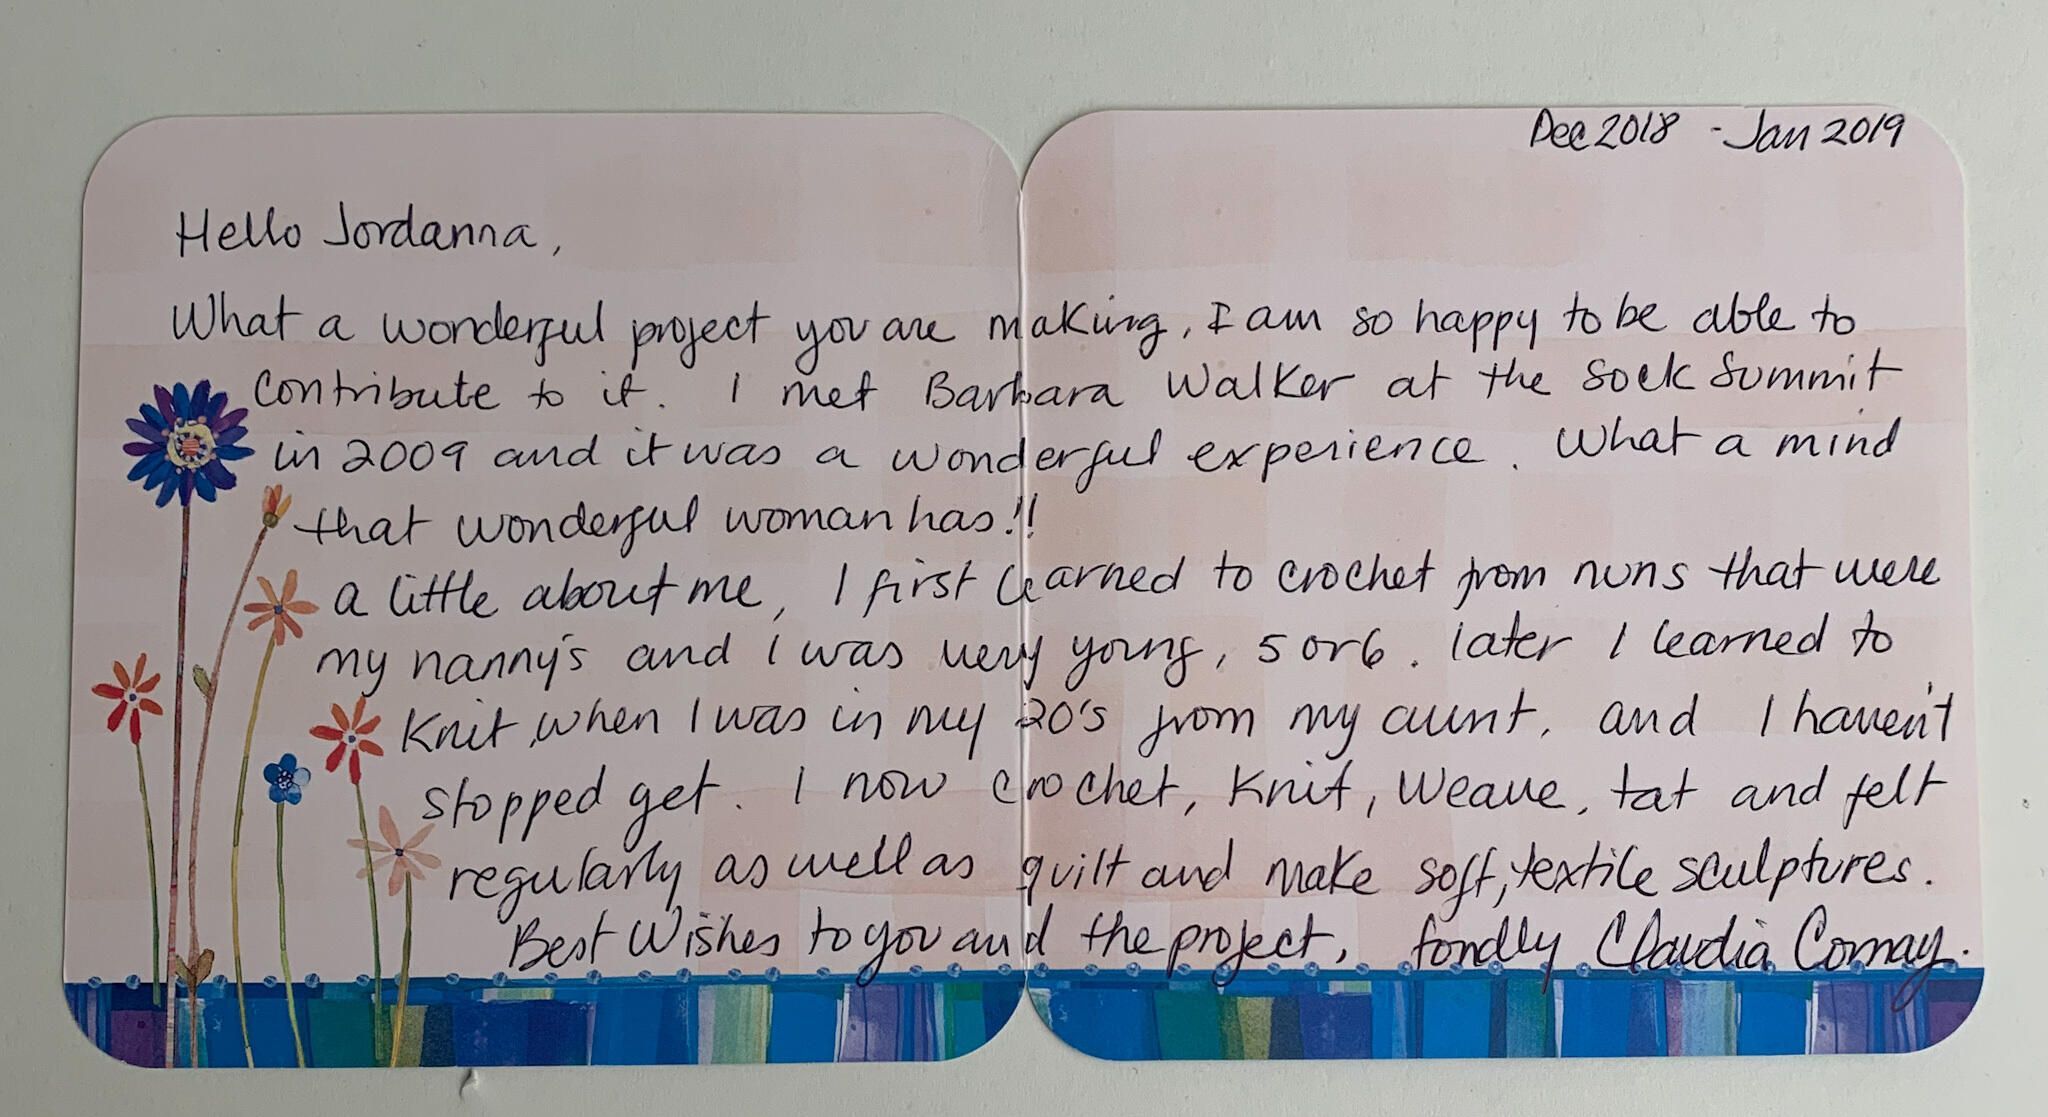 Dec 2018 - Jan 2019
Hello Jordanna,
What a wonderful project you are making, I am so happy to be able to
contribute to it. I met Barbara Walker at the Sock Summit
in 2009 and it was a wonderful experience. What a mind
that wonderful woman has!!
a little about me, I first learned to crochet from nuns that were
my nanny's and I was very young, 5 or 6. later I learned to
Knit, when I was in my 20's from my aunt, and I haven't
stopped get. I now crochet, Knit, Weave, tat and felt
regularly as well as quilt and make soft, textile sculptures.
Best Wishes to you and the project, fondly Claudia Comay.